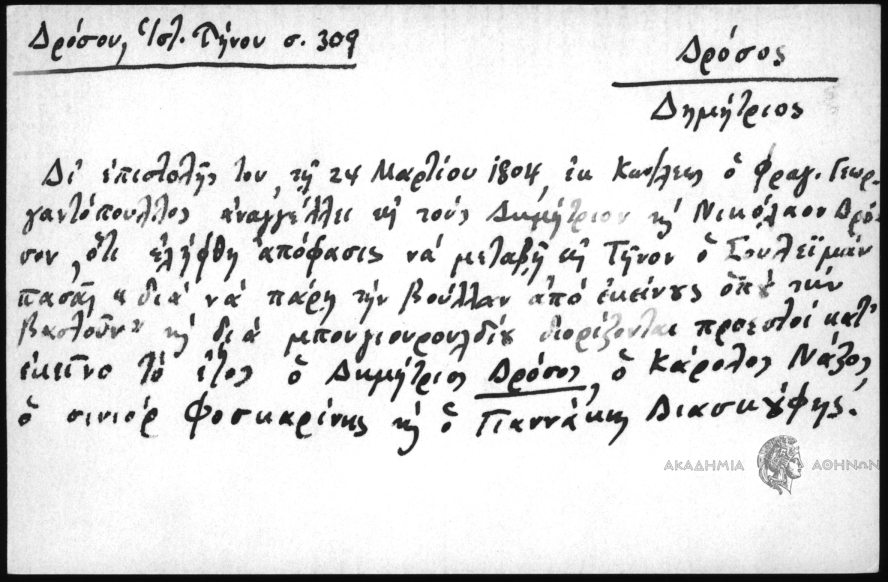 Δρόσου, Ἱστ. Τήνου σ. 309
Δρόσος
Δημήτριος
Δι' ἐπιστολῆς του, τῇ 24 Μαρτίου 1804, ἐκ Κων/λεως ὁ Φραγ. Γεωρ-
γαντόπουλλος ἀναγγέλλει εἰς τοὺς Δημήτριον καὶ Νικόλαον Δρό-
σον, ὅτι ἐλήφθη ἀπόφασις νὰ μεταβῇ εἰς Τῆνον ὁ Σουλεϊμὰν
πασᾶς "διὰ νὰ πάρῃ τὴν βούλλαν ἀπὸ ἐκείνους ὁποὺ τὴν
βαστοῦν" καὶ διὰ μπουγιουρουλδίου διορίζονται προεστοὶ κατ'
ἐκεῖνο τὸ ἔτος ὁ Δημήτριος Δρόσος, ὁ Κάρολος Νάζος,
ὁ σινιὸρ Φοσκαρίνης καὶ ὁ Γιαννάκης Διασκούφης.
ΑΚΑΔΗΜΙΑ ΑΘΗΝΩΝ